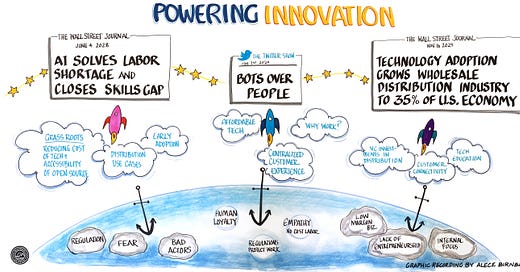 POWERING INNOVATION
THE WALL STREET JOURNAL
JUNE 4 2028
AI SOLVES LABOR
SHORTAGE AND
CLOSES SKILLS GAP
THE TWITTER SHOW
BOTS OVER
PEOPLE
THE WALL STREET JOURNAL
TECHNOLOGY ADOPTION
GROWS WHOLESALE
DISTRIBUTION INDUSTRY
TO 35% OF U.S. ECONOMY
GRASS ROOTS
REDUCING COST
OF TECH &
ACCESSIBILITY
OF OPEN SOURCE
DISTRIBUTION
USE CASES
EARLY
ADOPTION
AFFORDABLE
TECH
CENTRALIZED
CUSTOMER
EXPERIENCE
WHY WORK?
VC INVEST-
MENTS IN
DISTRIBUTION
CUSTOMER
CONNECTIVITY
TECH
EDUCATION
REGULATION
FEAR
BAD
ACTORS
HUMAN
LOYALTY
REGULATIONS
PROTECT WORK
EMPATHY
NO COST LABOR
LOW
MARGIN
BIZ
LACK OF
ENTREPRENEURSHIP
INTERNAL
FOCUS
GRAPHIC RECORDING BY ALECE BIRNBA